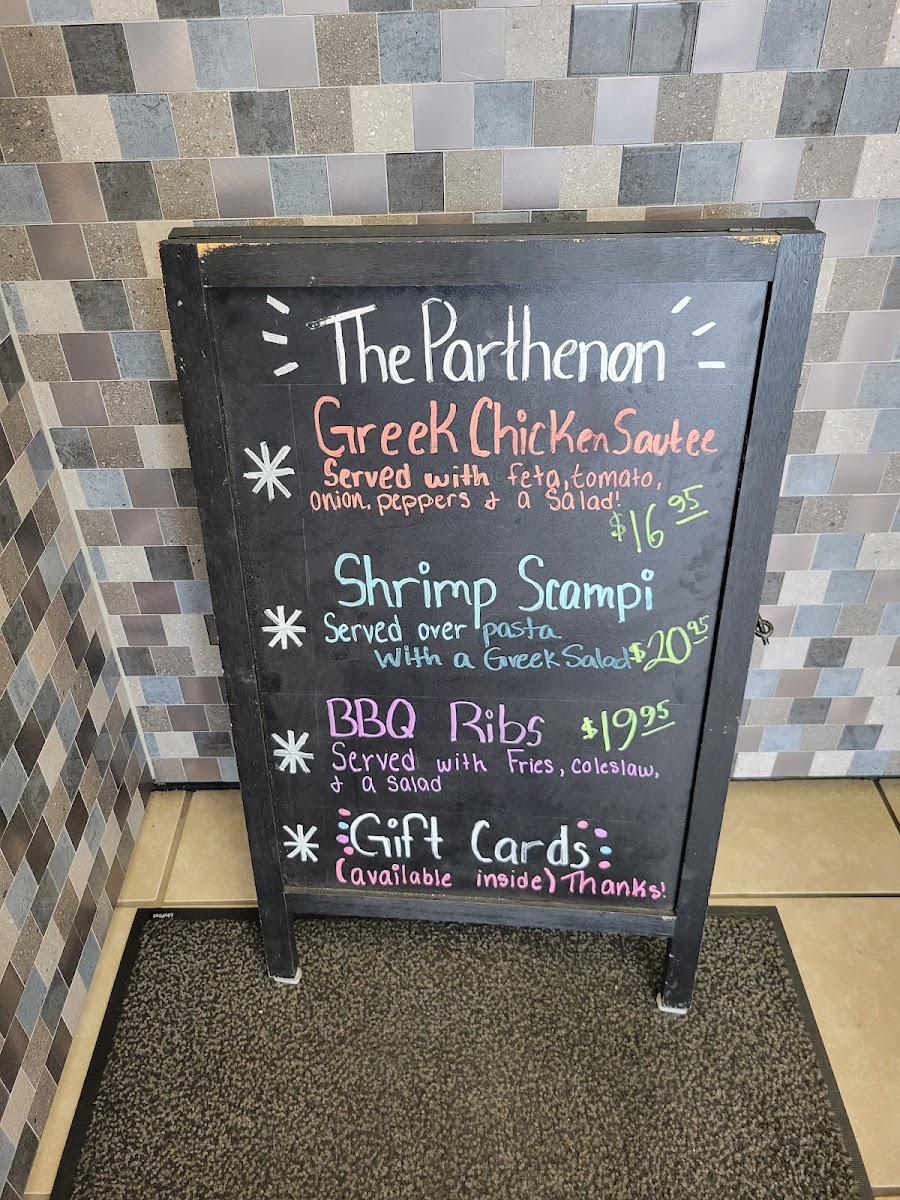 The Parthenon
Greek Chicken Sautee
Served with feta, tomato,
onion, peppers & a Salad!
$16 95
Shrimp Scampi
Served over pasta
With a Greek Salad $20 95
BBQ Ribs $19 95
Served with Fries, coleslaw,
& a salad
Gift Cards
(available inside) Thanks!